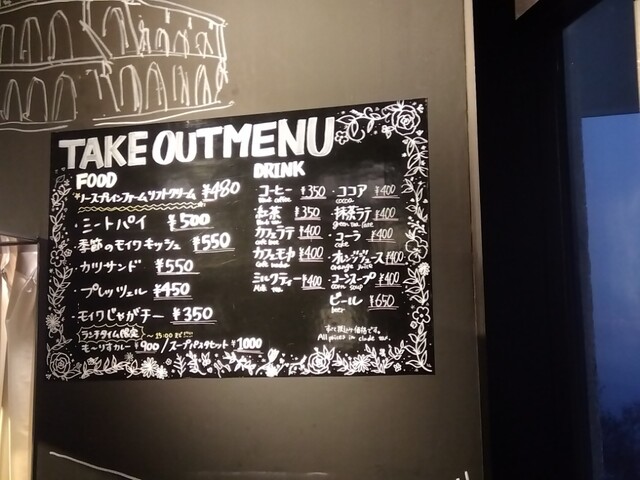 TAKE OUT MENU
FOOD
ノースプレインファームソフトクリーム ¥480
・ミートパイ ¥500
・季節のモイワキッシュ ¥550
・カツサンド ¥550
・プレッツェル ¥450
・モイワじゃがチー ¥350
ランチタイム限定 ～15:00まで!!!
もーりすカレー ¥900 / スープパスタセット ¥1000
DRINK
・コーヒー ¥350
・紅茶 ¥350
・カフェラテ ¥400
・カフェモカ ¥400
・ミルクティー ¥400
・ココア ¥400
cocoa
・抹茶ラテ ¥400
green tea latte
・コーラ ¥400
coke
・オレンジジュース ¥400
orange juice
・コーンスープ ¥400
corn soup
・ビール ¥650
beer
すべて税込み価格です。
All prices include tax.